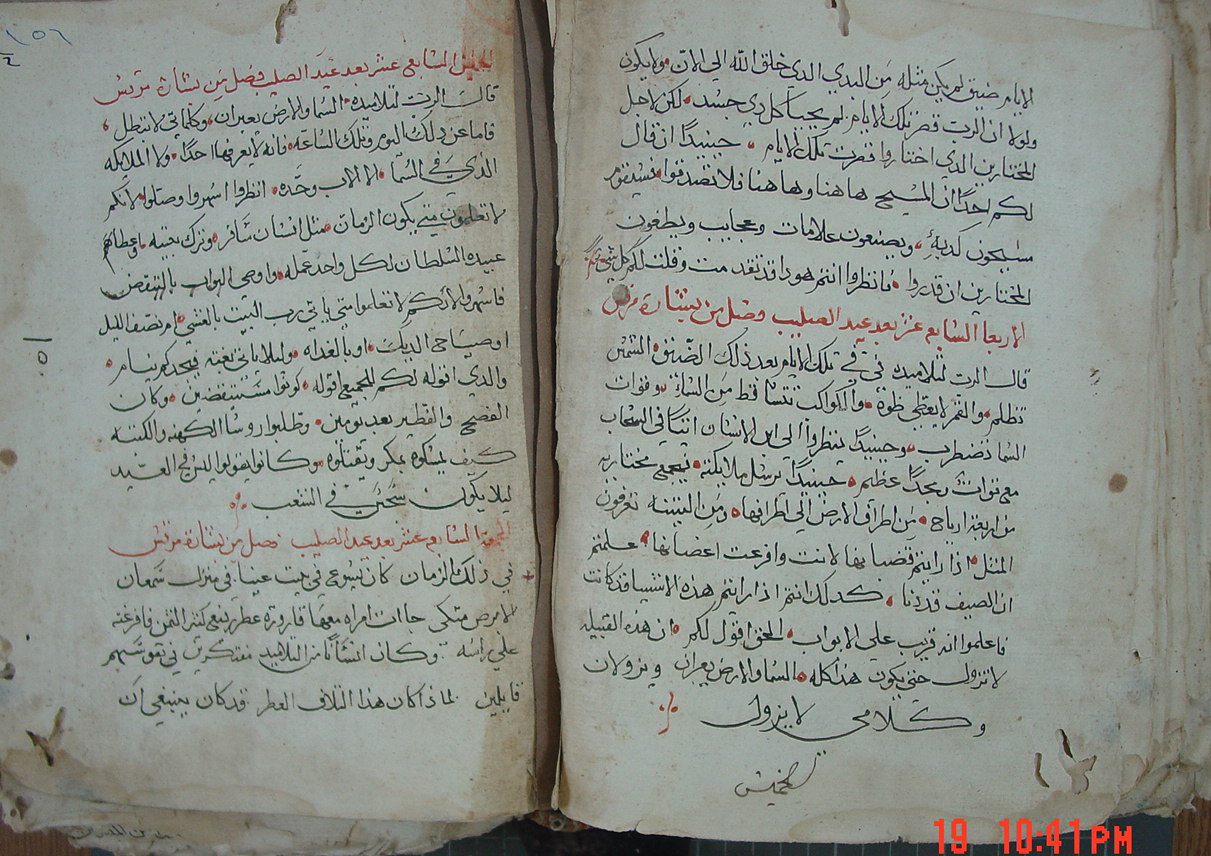 الايام ضيق لم يكن مثله من البدي الدي خلق الله الي الان ولا يكون
ولولا ان الرب قصر تلك الايام لم يحيا كل دي جسد لكن لاجل
المختارين الدي اختاروا قصرت تلك الايام حينيدًا ان قال
لكم احدًا ان المسيح هاهنا وهاهنا فلا تصدقوا فسيقوم
مسيحون كدبة ويصنعون علامات وعجايب ويطغون
المختارين ان قدروا فانظروا انتم هودا قد تقدمت وقلت لكم كل شي
الاربعا السابع عشر بعد عيد الصليب فصل من بشارة مرقس
قال الرب لتلاميده في تلك الايام بعد ذلك الضيق الشمس
تظلم والقمر لا يعطي ضوه والكواكب تتساقط من السما وقوات
السما تضطرب وحينيدًا ينظروا الي ابن الانسان اتيًا في السحاب
مع قوات ومجدًا عظيم حينيدًا يرسل ملايكته فيجمع مختاريه
من اربعة ارياح من اطراف الارض الي اطرافها ومن التينه تعرفون
المثل ادا رايتم قضبانها لانت وافرعت اعضانها علمتم
ان الصيف قد دنا كدلك انتم اذا رايتم هذه الاشيا قد كانت
فاعلموا انه قريب علي الابواب الحق اقول لكم ان هذه القبيله
لا تزول حتي يكون هدا كله السما والارض يعبران ويزولان
وكلامي لا يزول
الخميس
١٥٦
الخميس السابع عشر بعد عيد الصليب فصل من بشارة مرقس
قال الرب لتلاميده السما والارض يعبران وكلماتي لا تبطل
فاما عن دلك اليوم وتلك الساعه فانه لا يعرفها احدًا ولا الملايكه
الذي في السما الا الاب وحده انظروا اسهروا وصلوا لانكم
لا تعلمون متي يكون الزمان مثل انسان سافر وترك بيته واعطا
عبيده السلطان لكل واحد عمله واوصي البواب بالتيقض
فاسهروا لانكم لا تعلموا متي ياتي رب البيت بالعشي ام نصف الليل
او صياحي الديك او بالغداه وليلا ياتي بغته فيجدكم نيام
والدي اقوله لكم للجميع اقوله كونوا مستيقضين وكان
الفصح والفطير بعد يومين وطلبوا روسا الكهنه والكتبه
كيف يمسكوه بمكر ويقتلوه وكانوا يقولوا ليس في العيد
ليلا يكون سجس في الشعب
الجمعة السابع عشر بعد عيد الصليب فصل من بشارة مرقس
في ذلك الزمان كان يسوع في بيت عنيا في منزل سمعان
الابرص متكي جاات امراه معها قارورة عطر نقي كثير الثمن فافرغته
علي راسه وكان انسانًا من التلاميد مفتكرين في نفوسهم
قايلين لماذا كان هذا التلاف العطر قد كان ينبغي ان
19 10:41 PM